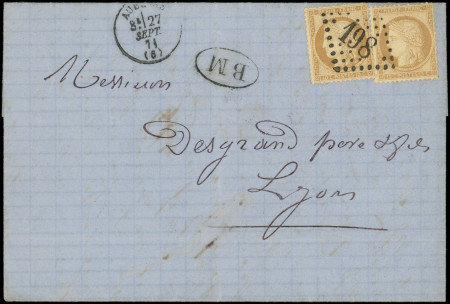 8E 27
SEPT.
71
(6)
B M
198
Messieurs
Desgrand père & fils
Lyon